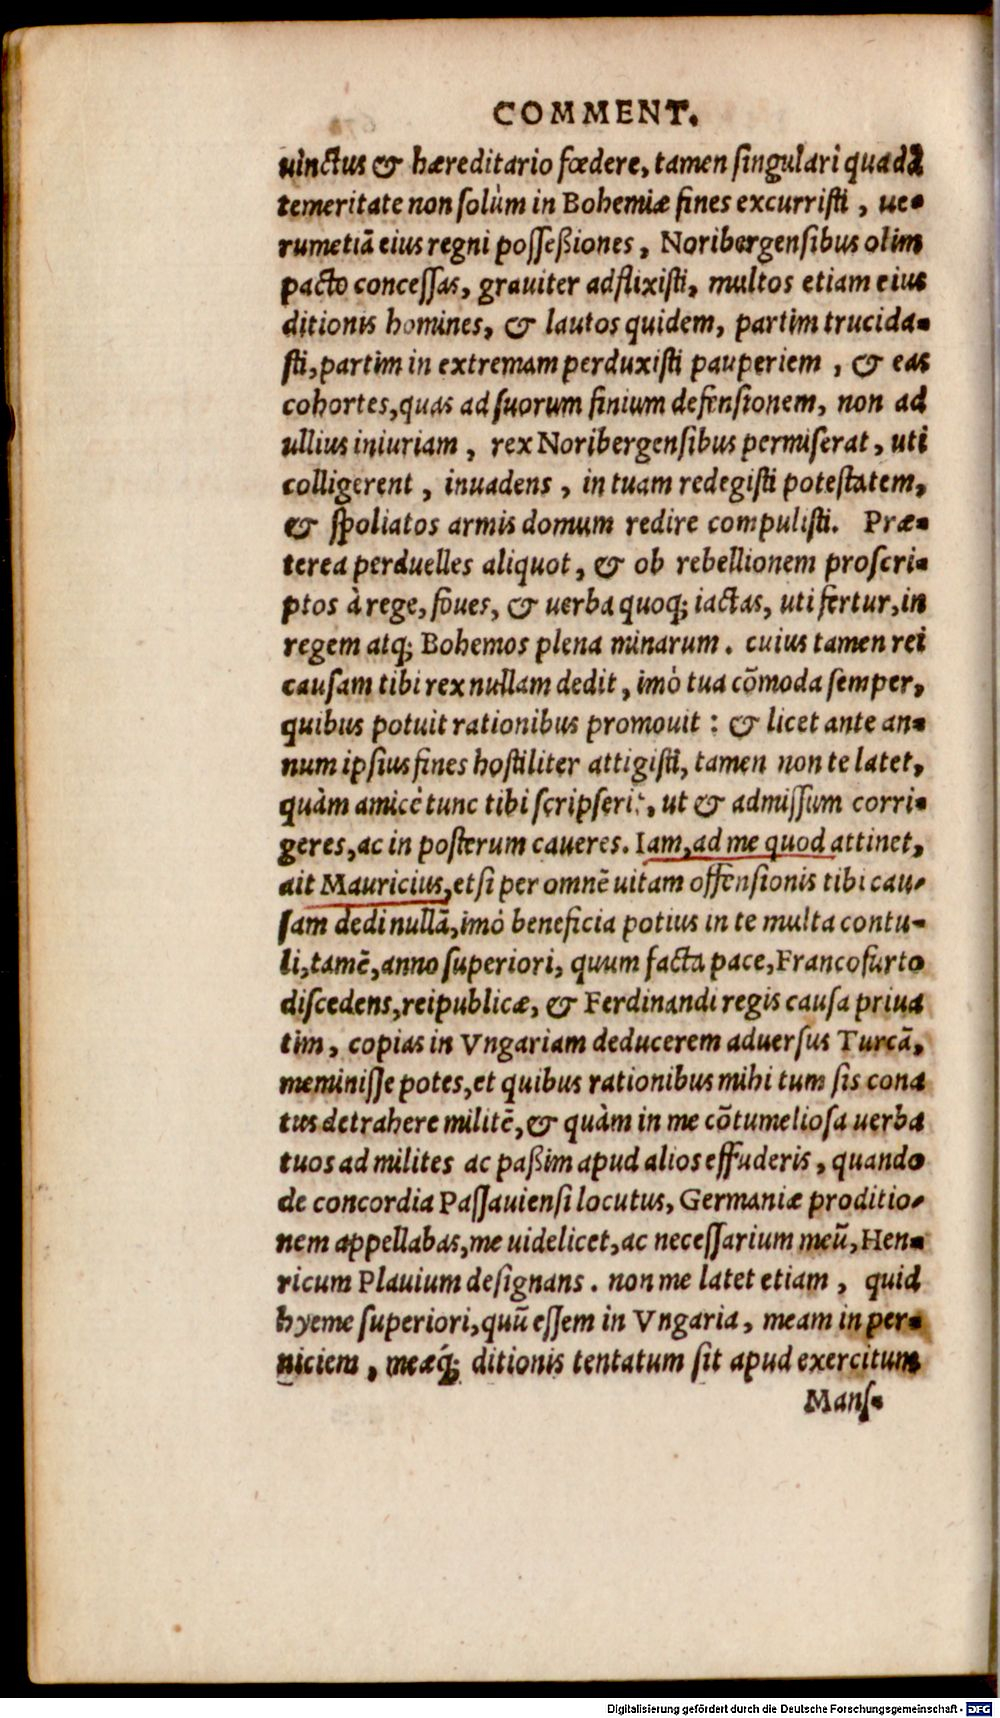 COMMENT.
uinctus & hæreditario fœdere, tamen singulari quadã
temeritate non solùm in Bohemiæ fines excurristi, ue-
rumetiã eius regni possessiones, Noribergensibus olim
pacto concessas, grauiter adflixisti, multos etiam eius
ditionis homines, & lautos quidem, partim trucida-
sti, partim in extremam perduxisti pauperiem, & eas
cohortes, quas ad suorum finium defensionem, non ad
ullius iniuriam, rex Noribergensibus permiserat, uti
colligerent, inuadens, in tuam redegisti potestatem,
& spoliatos armis domum redire compulisti. Præ-
terea perduelles aliquot, & ob rebellionem proscri-
ptos à rege, foues, & uerba quoq; iactas, uti fertur, in
regem atq; Bohemos plena minarum. cuius tamen rei
causam tibi rex nullam dedit, imò tua cõmoda semper,
quibus potuit rationibus promouit: & licet ante an-
num ipsius fines hostiliter attigisti, tamen non te latet,
quàm amicè tunc tibi scripserit, ut & admissum corri-
geres, ac in posterum caueres. Iam, ad me quod attinet,
ait Mauricius, etsi per omnẽ uitam offensionis tibi cau-
sam dedi nullã, imò beneficia potius in te multa contu-
li, tamẽ, anno superiori, quum facta pace, Francofurto
discedens, reipublicæ, & Ferdinandi regis causa priua
tim, copias in Vngariam deducerem aduersus Turcã,
meminisse potes, et quibus rationibus mihi tum sis cona
tus detrahere militẽ, & quàm in me cõtumeliosa uerba
tuos ad milites ac passim apud alios effuderis, quando
de concordia Passauiensi locutus, Germaniæ proditio-
nem appellabas, me uidelicet, ac necessarium meũ, Hen-
ricum Plauium designans. non me latet etiam, quid
hyeme superiori, quũ essem in Vngaria, meam in per-
niciem, meæq́; ditionis tentatum sit apud exercitum
Mans-
Digitalisierung gefördert durch die Deutsche Forschungsgemeinschaft - DFG